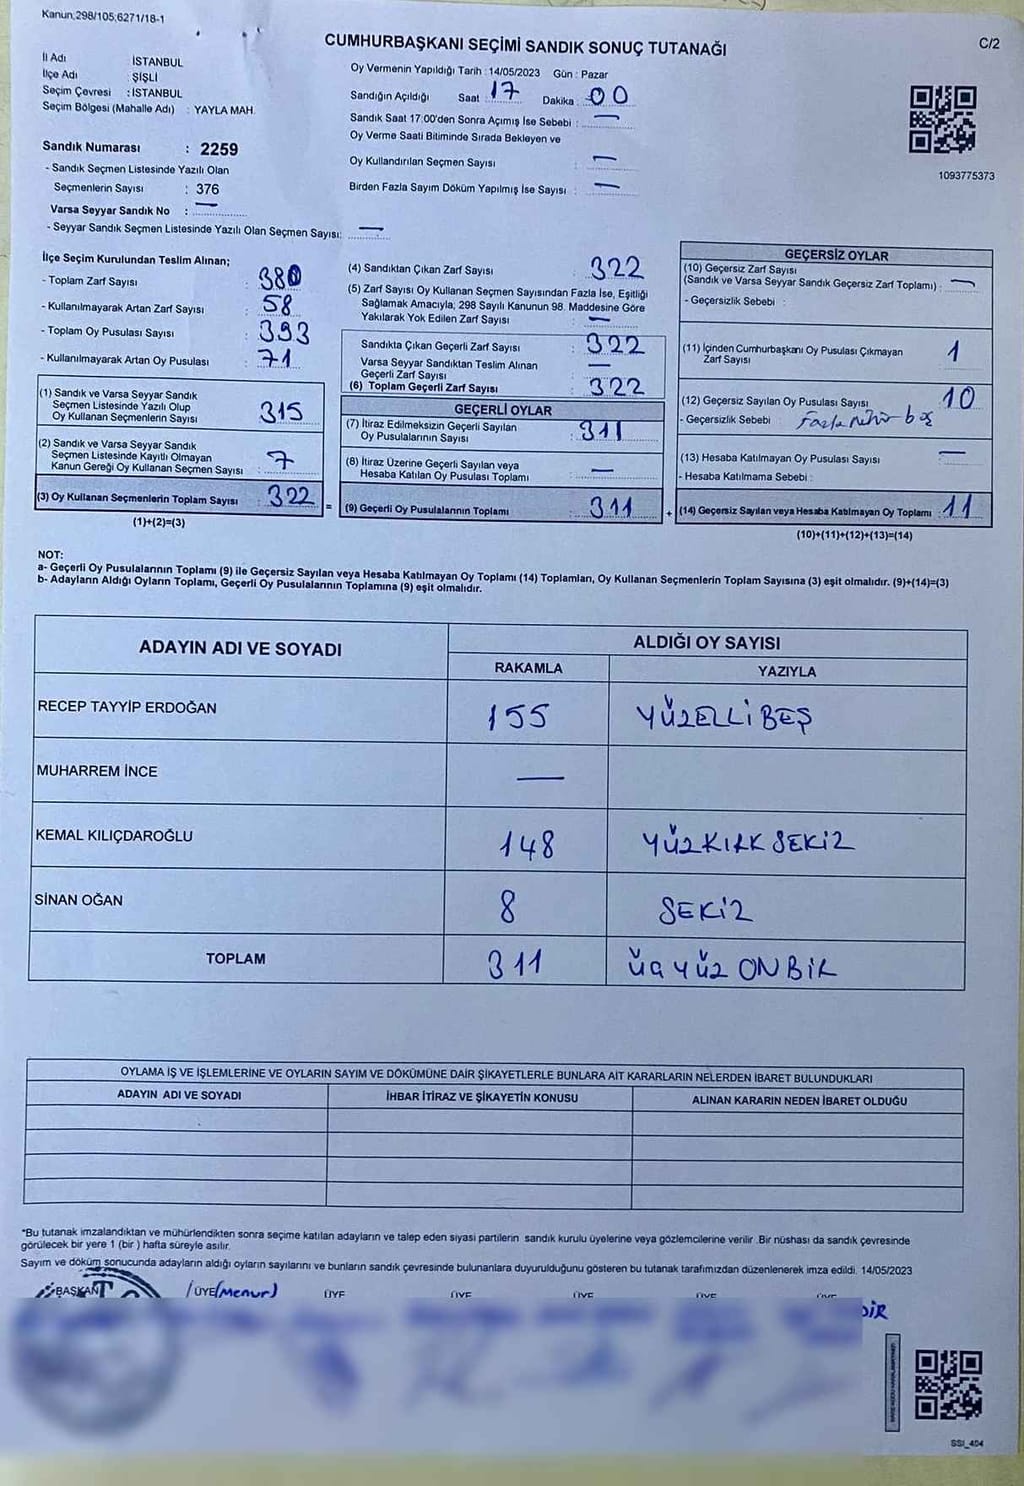 Kanun,298/105,6271/18-1
CUMHURBAŞKANI SEÇİMİ SANDIK SONUÇ TUTANAĞI
C/2
İl Adı : İSTANBUL
İlçe Adı : ŞİŞLİ
Seçim Çevresi : İSTANBUL
Seçim Bölgesi (Mahalle Adı) : YAYLA MAH.
Sandık Numarası : 2259
- Sandık Seçmen Listesinde Yazılı Olan
Seçmenlerin Sayısı : 376
Varsa Seyyar Sandık No : —
- Seyyar Sandık Seçmen Listesinde Yazılı Olan Seçmen Sayısı: —
Oy Vermenin Yapıldığı Tarih : 14/05/2023 Gün : Pazar
Sandığın Açıldığı Saat : 17 Dakika : 00
Sandık Saat 17:00'den Sonra Açımış İse Sebebi : —
Oy Verme Saati Bitiminde Sırada Bekleyen ve
Oy Kullandırılan Seçmen Sayısı : —
Birden Fazla Sayım Döküm Yapılmış İse Sayısı : —
1093775373
İlçe Seçim Kurulundan Teslim Alınan;
- Toplam Zarf Sayısı : 380
- Kullanılmayarak Artan Zarf Sayısı : 58
- Toplam Oy Pusulası Sayısı : 393
- Kullanılmayarak Artan Oy Pusulası : 71
(1) Sandık ve Varsa Seyyar Sandık
Seçmen Listesinde Yazılı Olup
Oy Kullanan Seçmenlerin Sayısı : 315
(2) Sandık ve Varsa Seyyar Sandık
Seçmen Listesinde Kayıtlı Olmayan
Kanun Gereği Oy Kullanan Seçmen Sayısı : 7
(3) Oy Kullanan Seçmenlerin Toplam Sayısı : 322 =
(1)+(2)=(3)
(4) Sandıktan Çıkan Zarf Sayısı : 322
(5) Zarf Sayısı Oy Kullanan Seçmen Sayısından Fazla İse, Eşitliği
Sağlamak Amacıyla, 298 Sayılı Kanunun 98. Maddesine Göre
Yakılarak Yok Edilen Zarf Sayısı : —
Sandıkta Çıkan Geçerli Zarf Sayısı : 322
Varsa Seyyar Sandıktan Teslim Alınan
Geçerli Zarf Sayısı : —
(6) Toplam Geçerli Zarf Sayısı : 322
GEÇERLİ OYLAR
(7) İtiraz Edilmeksizin Geçerli Sayılan
Oy Pusulalarının Sayısı : 311
(8) İtiraz Üzerine Geçerli Sayılan veya
Hesaba Katılan Oy Pusulası Toplamı : —
(9) Geçerli Oy Pusulalarının Toplamı : 311 +
GEÇERSİZ OYLAR
(10) Geçersiz Zarf Sayısı
(Sandık ve Varsa Seyyar Sandık Geçersiz Zarf Toplamı) : —
- Geçersizlik Sebebi :
(11) İçinden Cumhurbaşkanı Oy Pusulası Çıkmayan
Zarf Sayısı : 1
(12) Geçersiz Sayılan Oy Pusulası Sayısı : 10
- Geçersizlik Sebebi : Fazla mühür boş
(13) Hesaba Katılmayan Oy Pusulası Sayısı : —
- Hesaba Katılmama Sebebi :
(14) Geçersiz Sayılan veya Hesaba Katılmayan Oy Toplamı : 11
(10)+(11)+(12)+(13)=(14)
NOT:
a- Geçerli Oy Pusulalarının Toplamı (9) ile Geçersiz Sayılan veya Hesaba Katılmayan Oy Toplamı (14) Toplamları, Oy Kullanan Seçmenlerin Toplam Sayısına (3) eşit olmalıdır. (9)+(14)=(3)
b- Adayların Aldığı Oyların Toplamı, Geçerli Oy Pusulalarının Toplamına (9) eşit olmalıdır.
ADAYIN ADI VE SOYADI
ALDIĞI OY SAYISI
RAKAMLA YAZIYLA
RECEP TAYYİP ERDOĞAN 155 YÜZELLİ BEŞ
MUHARREM İNCE —
KEMAL KILIÇDAROĞLU 148 YÜZKIRK SEKİZ
SİNAN OĞAN 8 SEKİZ
TOPLAM 311 ÜÇ YÜZ ONBİR
OYLAMA İŞ VE İŞLEMLERİNE VE OYLARIN SAYIM VE DÖKÜMÜNE DAİR ŞİKAYETLERLE BUNLARA AİT KARARLARIN NELERDEN İBARET BULUNDUKLARI
ADAYIN ADI VE SOYADI İHBAR İTİRAZ VE ŞİKAYETİN KONUSU ALINAN KARARIN NEDEN İBARET OLDUĞU
*Bu tutanak imzalandıktan ve mühürlendikten sonra seçime katılan adayların ve talep eden siyasi partilerin sandık kurulu üyelerine veya gözlemcilerine verilir .Bir nüshası da sandık çevresinde
görülecek bir yere 1 (bir ) hafta süreyle asılır.
Sayım ve döküm sonucunda adayların aldığı oyların sayılarını ve bunların sandık çevresinde bulunanlara duyurulduğunu gösteren bu tutanak tarafımızdan düzenlenerek imza edildi. 14/05/2023
BAŞKAN ÜYE(Memur) ÜYE ÜYE ÜYE ÜYE ÜYE
SSI_404